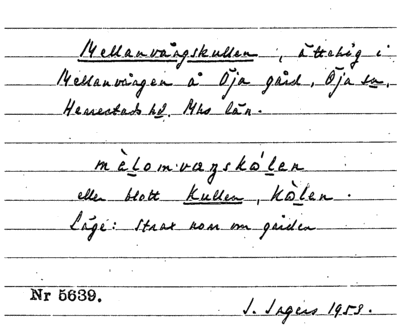 Mellanvångskullen, ättehög i
Mellanvången å Öja gård, Öja sn,
Herrestads hd. Mhs län.
mèlom·vaŋskólen
eller blott Kullen, kòlen.
Läge: strax norr om gården
Nr 5639.
J. Ingers 1953.